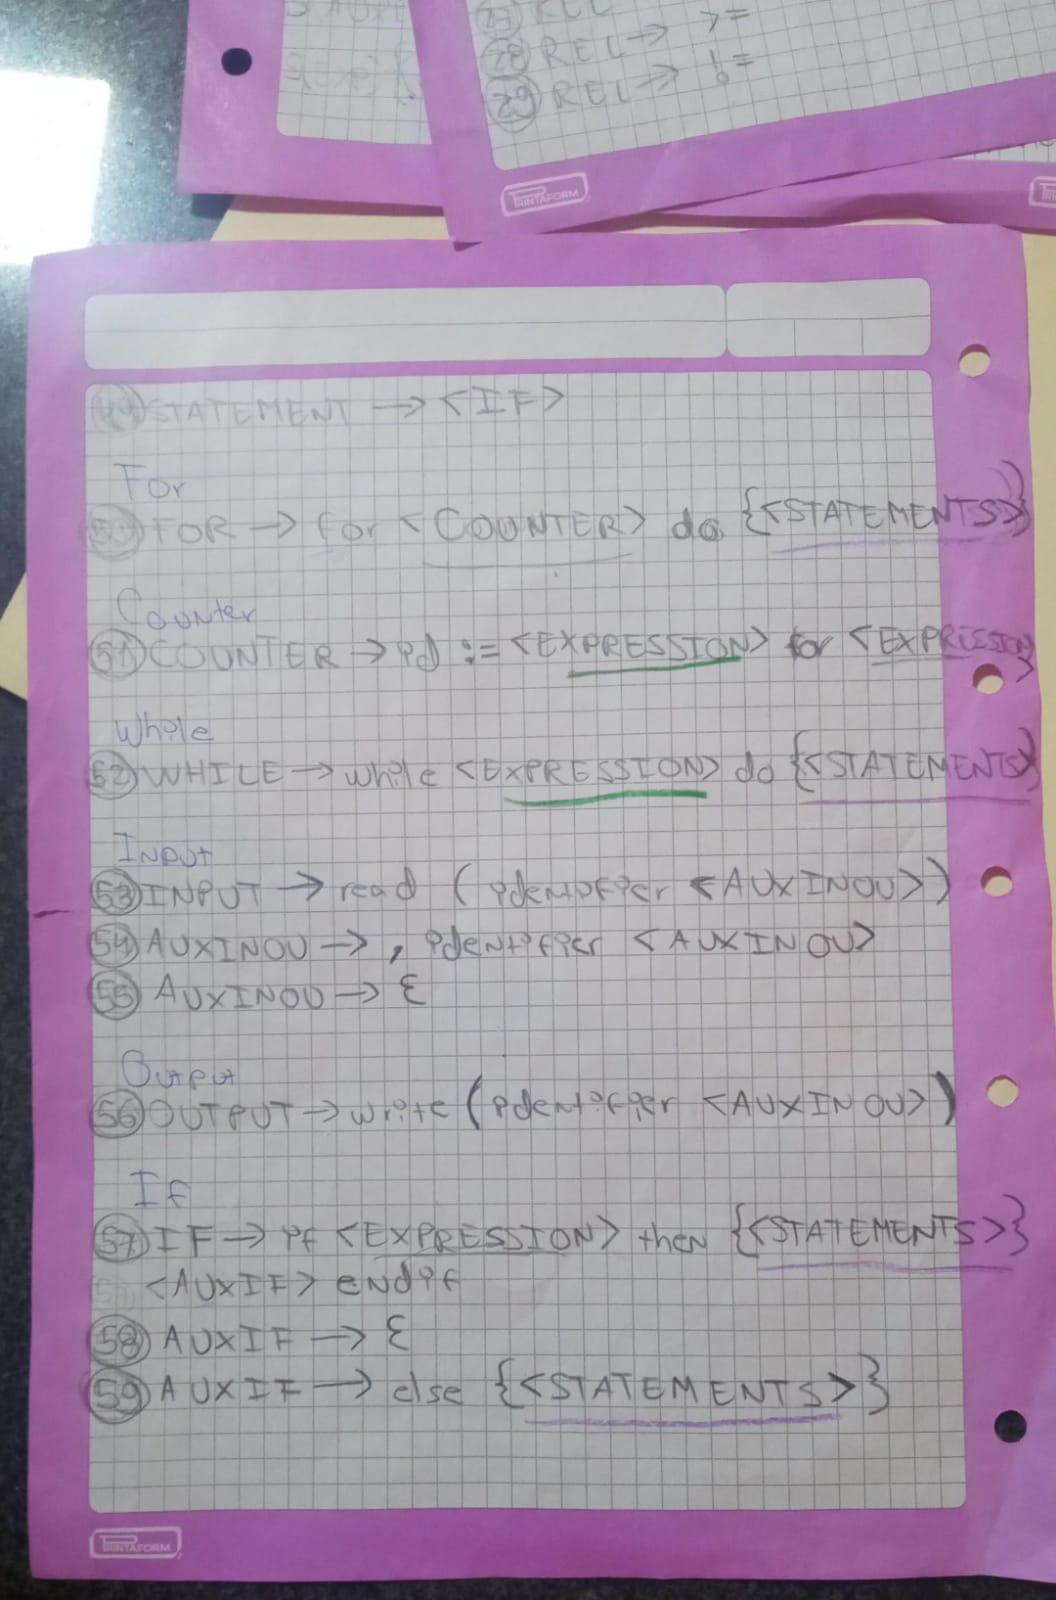 28 REL → >=
29 REL → !=
PRINTAFORM
49 STATEMENT → <IF>
For
50 FOR → for <COUNTER> do {<STATEMENTS>}
Counter
51 COUNTER → id := <EXPRESSION> for <EXPRESSION>
While
52 WHILE → while <EXPRESSION> do {<STATEMENTS>}
Input
53 INPUT → read ( identifier <AUXINOU>)
54 AUXINOU → , identifier <AUXINOU>
55 AUXINOU → ε
Output
56 OUTPUT → write (identifier <AUXINOU>)
If
57 IF → if <EXPRESSION> then {<STATEMENTS>}
<AUXIF> endif
58 AUXIF → ε
59 AUXIF → else {<STATEMENTS>}
PRINTAFORM